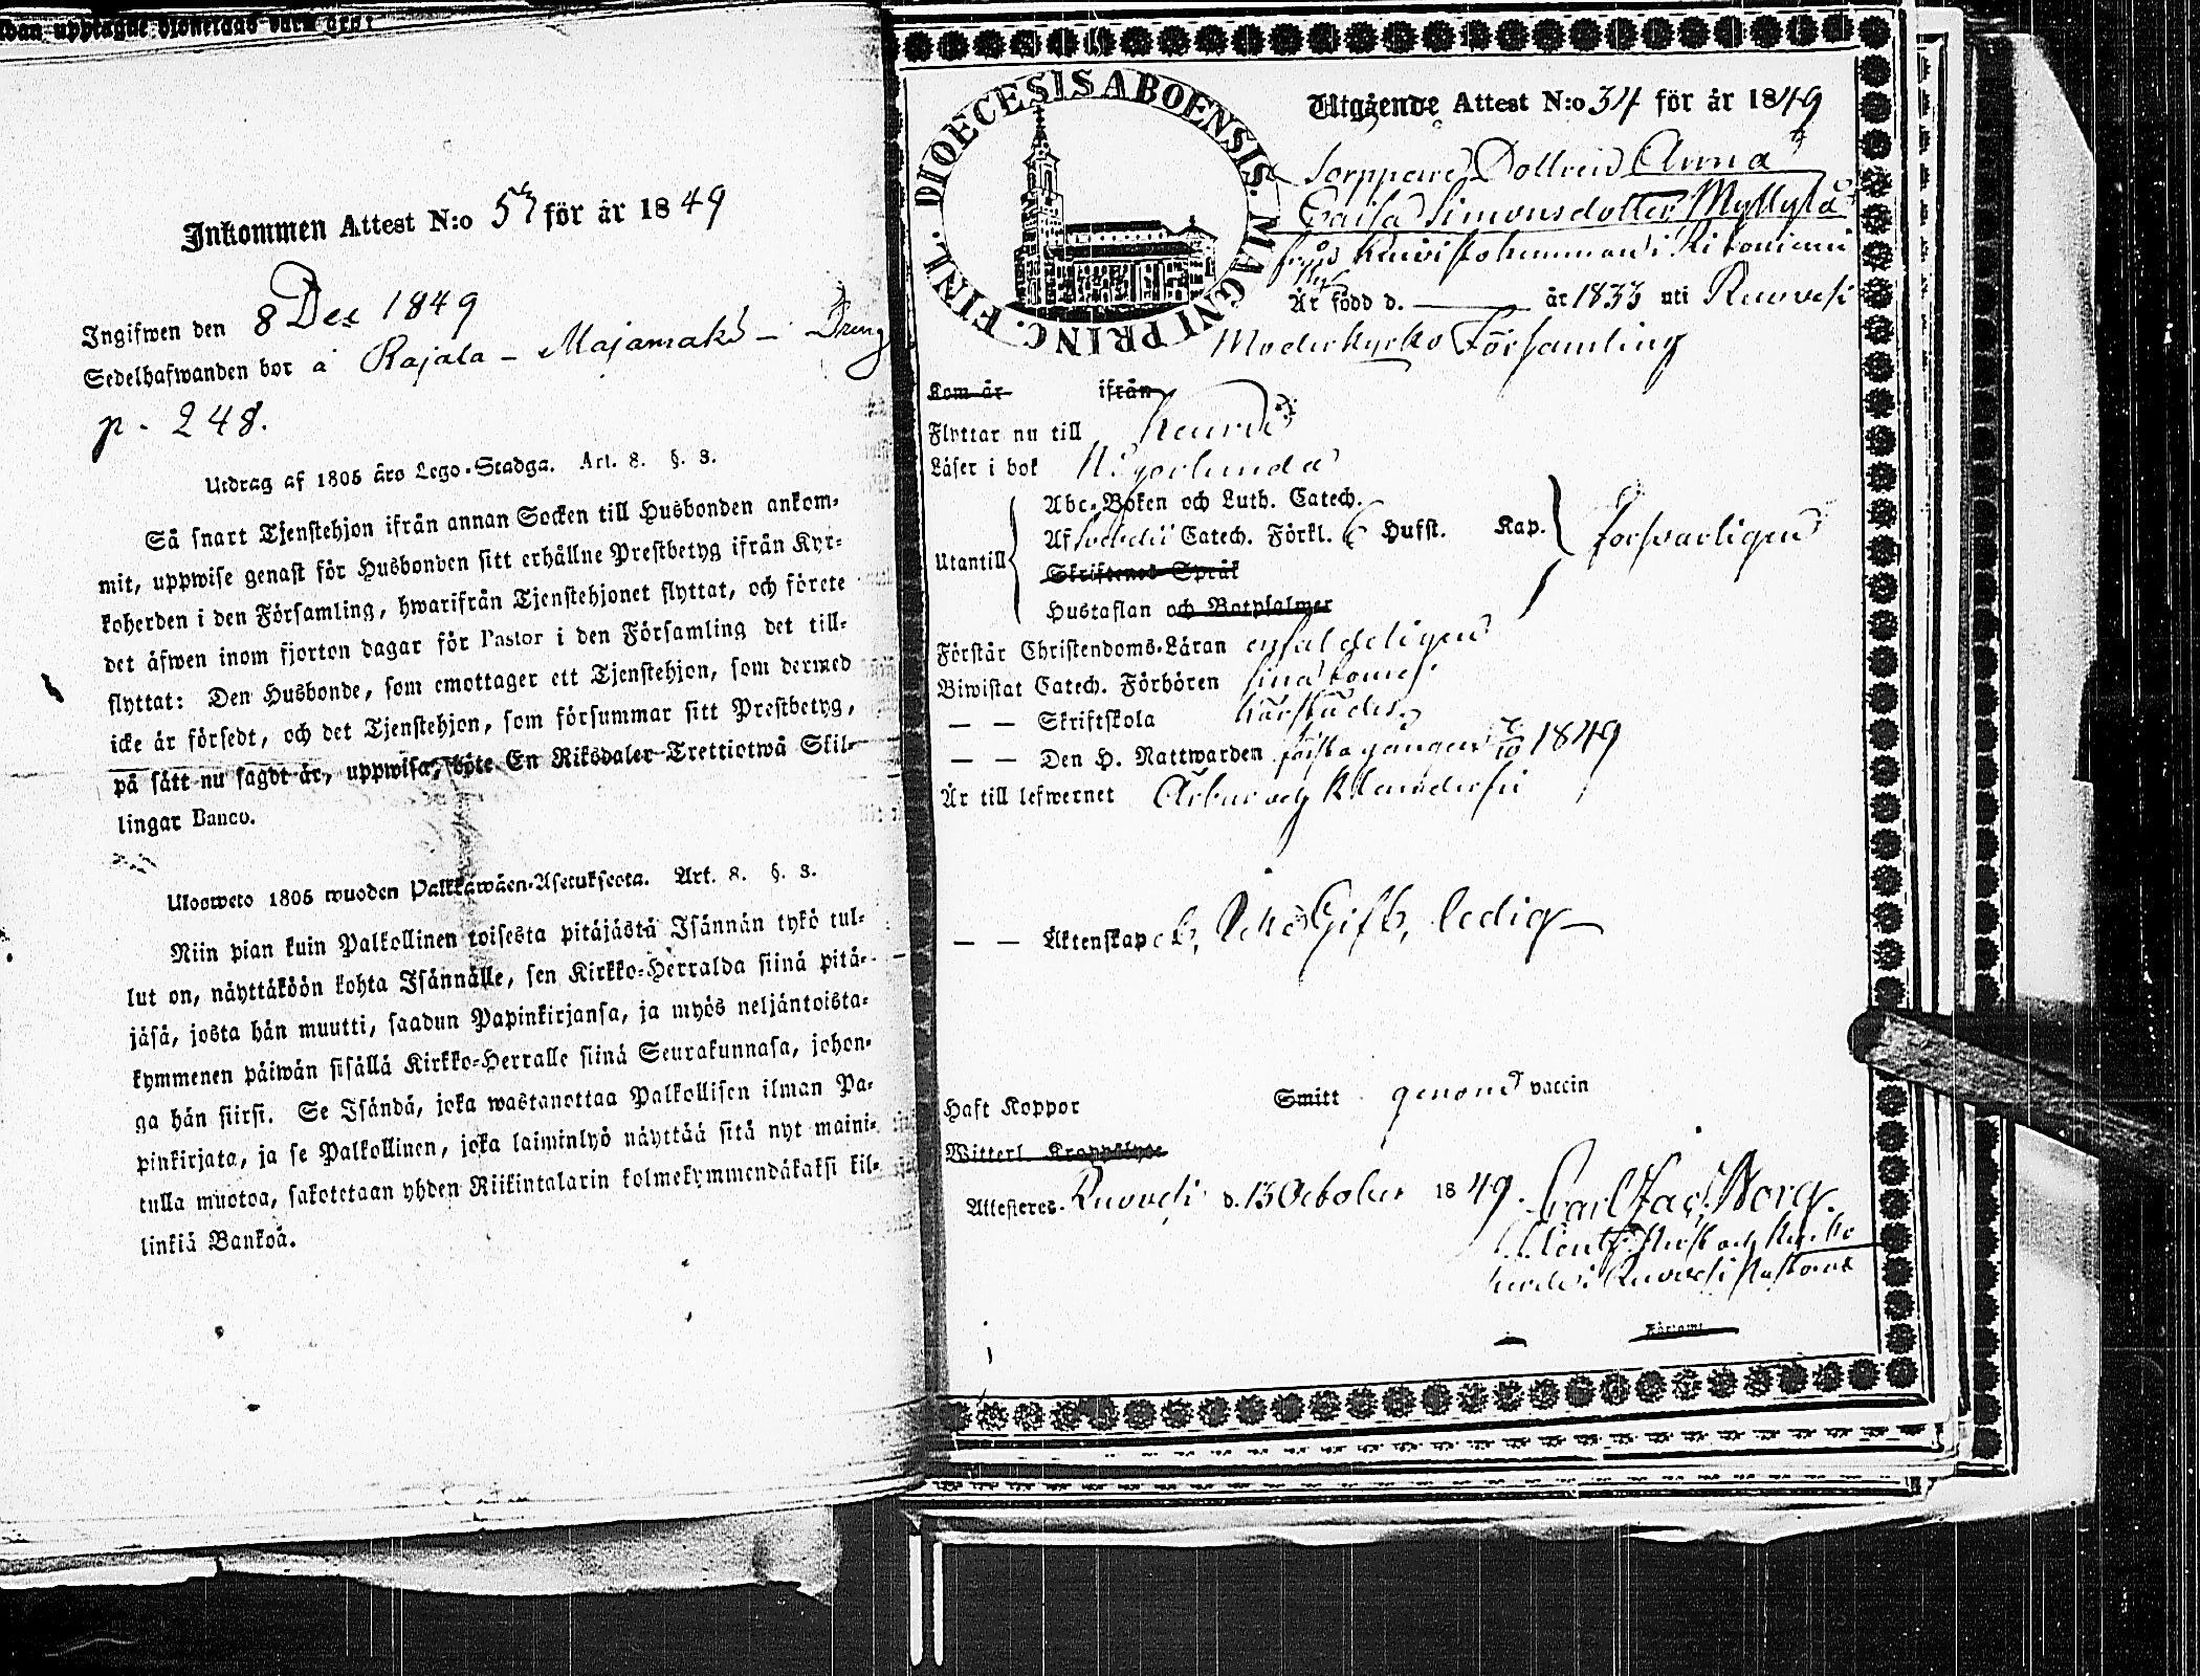 Inkommen Attest N:o 57 för år 1849
Ingifwen den 8 Dec 1849
Sedelhafwanden bor å Rajala – Majamäki – Dreng
p. 248.
Utdrag af 1805 års Lego-Stadga. Art. 8. §. 3.
Så snart Tjenstehjon ifrån annan Socken till Husbonden ankom-
mit, uppwise genast för Husbonden sitt erhållne Prestbetyg ifrån Kyr-
koherden i den Församling, hwarifrån Tjenstehjonet flyttat, och förete
det äfwen inom fjorton dagar för Pastor i den Församling det till-
flyttat: Den Husbonde, som emottager ett Tjenstehjon, som dermed
icke är försedt, och det Tjenstehjon, som försummar sitt Prestbetyg,
på sätt nu sagdt är, uppwisa, böte En Riksdaler Trettiotwå Skil-
lingar Banco.
Ulosweto 1805 wuoden Palkkawäen-Asetuksesta. Art. 8. §. 3.
Niin pian kuin Palkollinen toisesta pitäjästä Isännän tykö tul-
lut on, näyttäköön kohta Isännälle, sen Kirkko-Herralda siinä pitä-
jäsä, josta hän muutti, saadun Papinkirjansa, ja myös neljäntoista-
kymmenen päiwän sisällä Kirkko-Herralle siinä Seurakunnasa, johon-
ga hän siirsi. Se Isändä, joka wastanottaa Palkollisen ilman Pa-
pinkirjata, ja se Palkollinen, joka laiminlyö näyttää sitä nyt maini-
tulla muotoa, sakotetaan yhden Riikintalarin kolmekymmendäkaksi kil-
linkiä Bankoå.
DIOECESIS ABOENSIS. MAGNI PRINC. FINL.
Utgående Attest N:o 34 för år 1849
Sorppare Dottren Anna
Caisa Simonsdotter Myllylä
från Ruuistohemman i Ritoniemi
Är född d. — år 1833 uti Ruovesi
Moderkyrko Församling
Kom år ifrån
Flyttar nu till Keuru
Läser i bok
Utantill
Abc-Boken och Luth. Catech.
Af Svebelii Catech. Förkl. 6 Hufst. Kap. försvarligen
Skriftenes Språk
Hustaflan och Botpsalmer
Förstår Christendoms-Läran enfaldeligen
Biwistat Catech. Förhören
— — Skriftskola
— — Den H. Nattwarden första gången 7/10 1849
Är till lefwernet Ärbar och
— — Äktenskap Gift, ledig
Haft Koppor Smitt genom vaccin
Witterl. Kroppslyte
Attesteras. Ruovesi d. 13 October 1849. Carl Jac. Borg.
Ruovesi Pastorat
Församl.